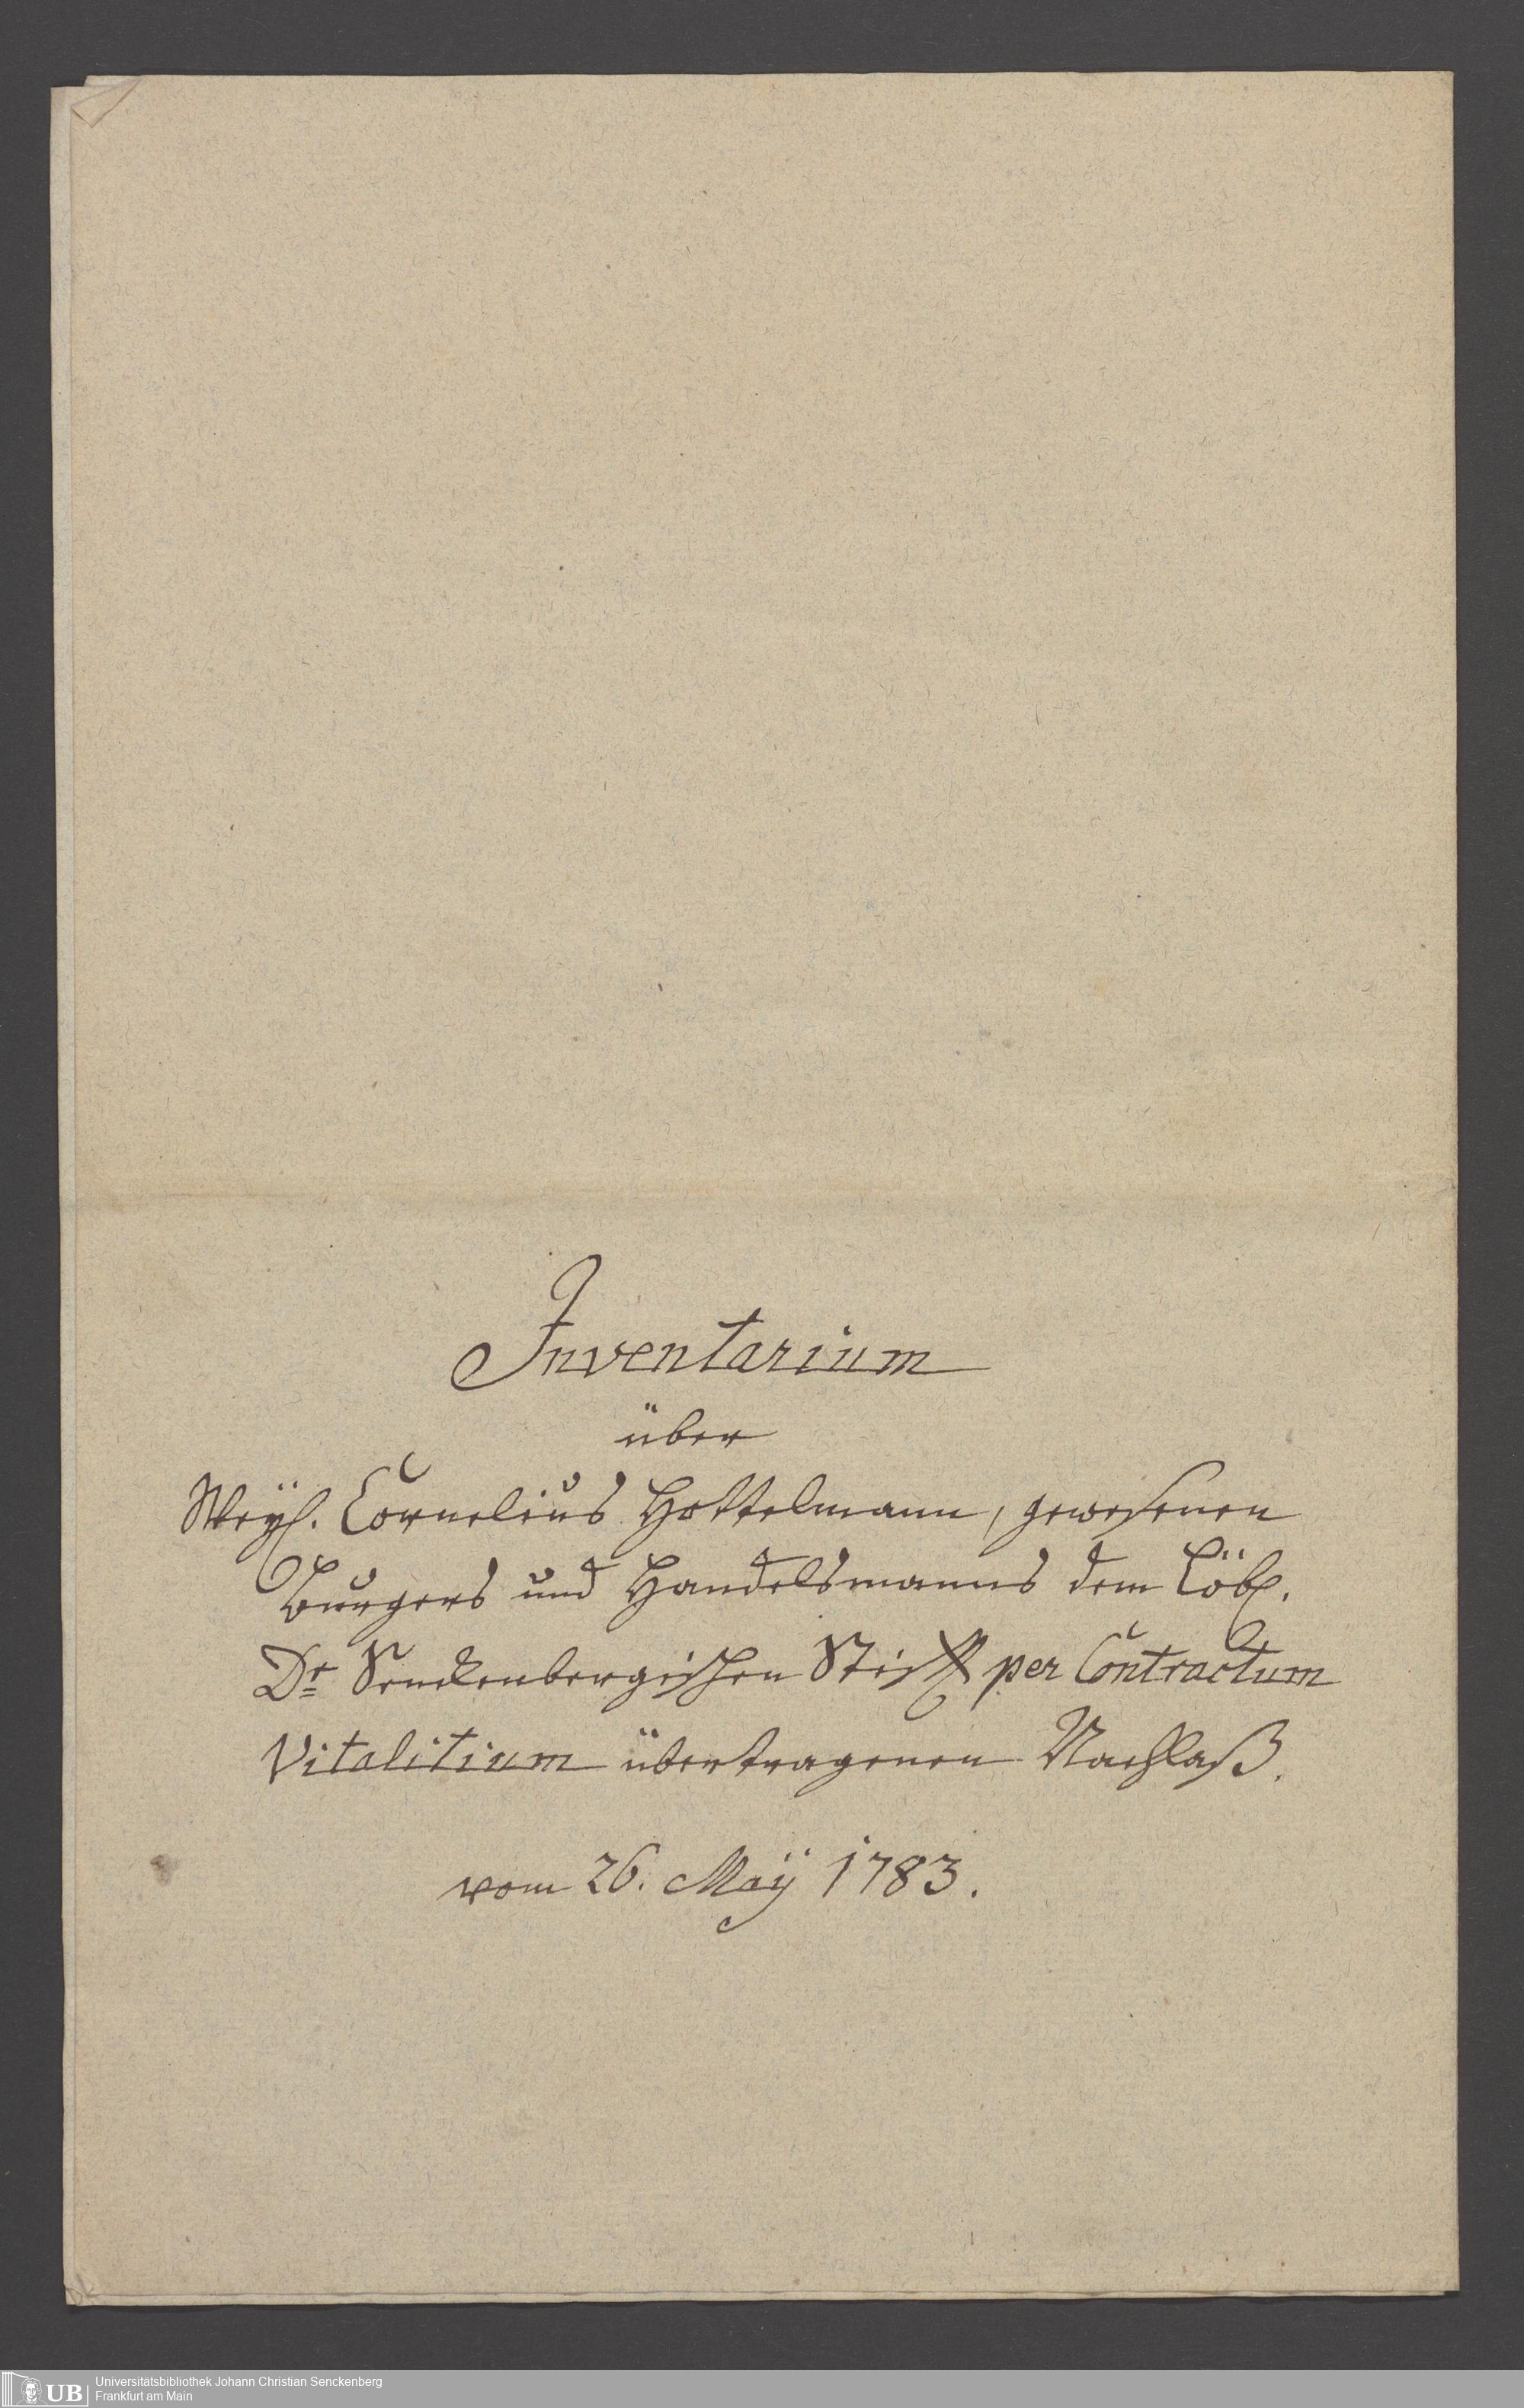 Inventarium
über
Weÿl. Cornelius Hottelmann, gewesenen
Burgers und Handelsmanns dem Löbl.
Dr Senckenbergischen Stifft per Contractum
Vitalitium übertragenen Nachlaß.
vom 26. Maÿ 1783.
UB
Universitätsbibliothek Johann Christian Senckenberg
Frankfurt am Main